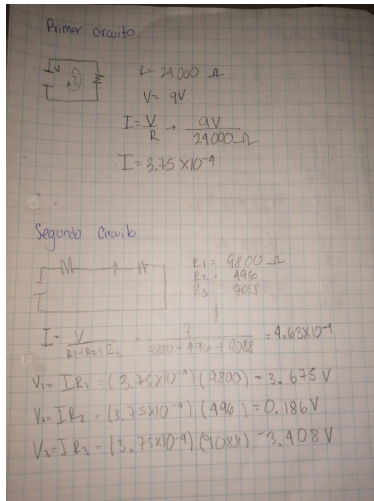 Primer circuito.
I V
R= 24000 Ω
V= 9V
I = V/R = 9V/24000 Ω
I = 3.75 x10⁻⁴
Segundo Circuito
R1= 9800 Ω
R2= 496
R3= 9088
I = V/(R1+R2+R3) = 9/(9800+496+9088) = 4.63x10⁻⁴
V1= I R1 = (3.75x10⁻⁴)(9800) = 3.675 V
V2= I R2 = (3.75x10⁻⁴)(496) = 0.186 V
V3= I R3 = (3.75x10⁻⁴)(9088) = 3.408 V